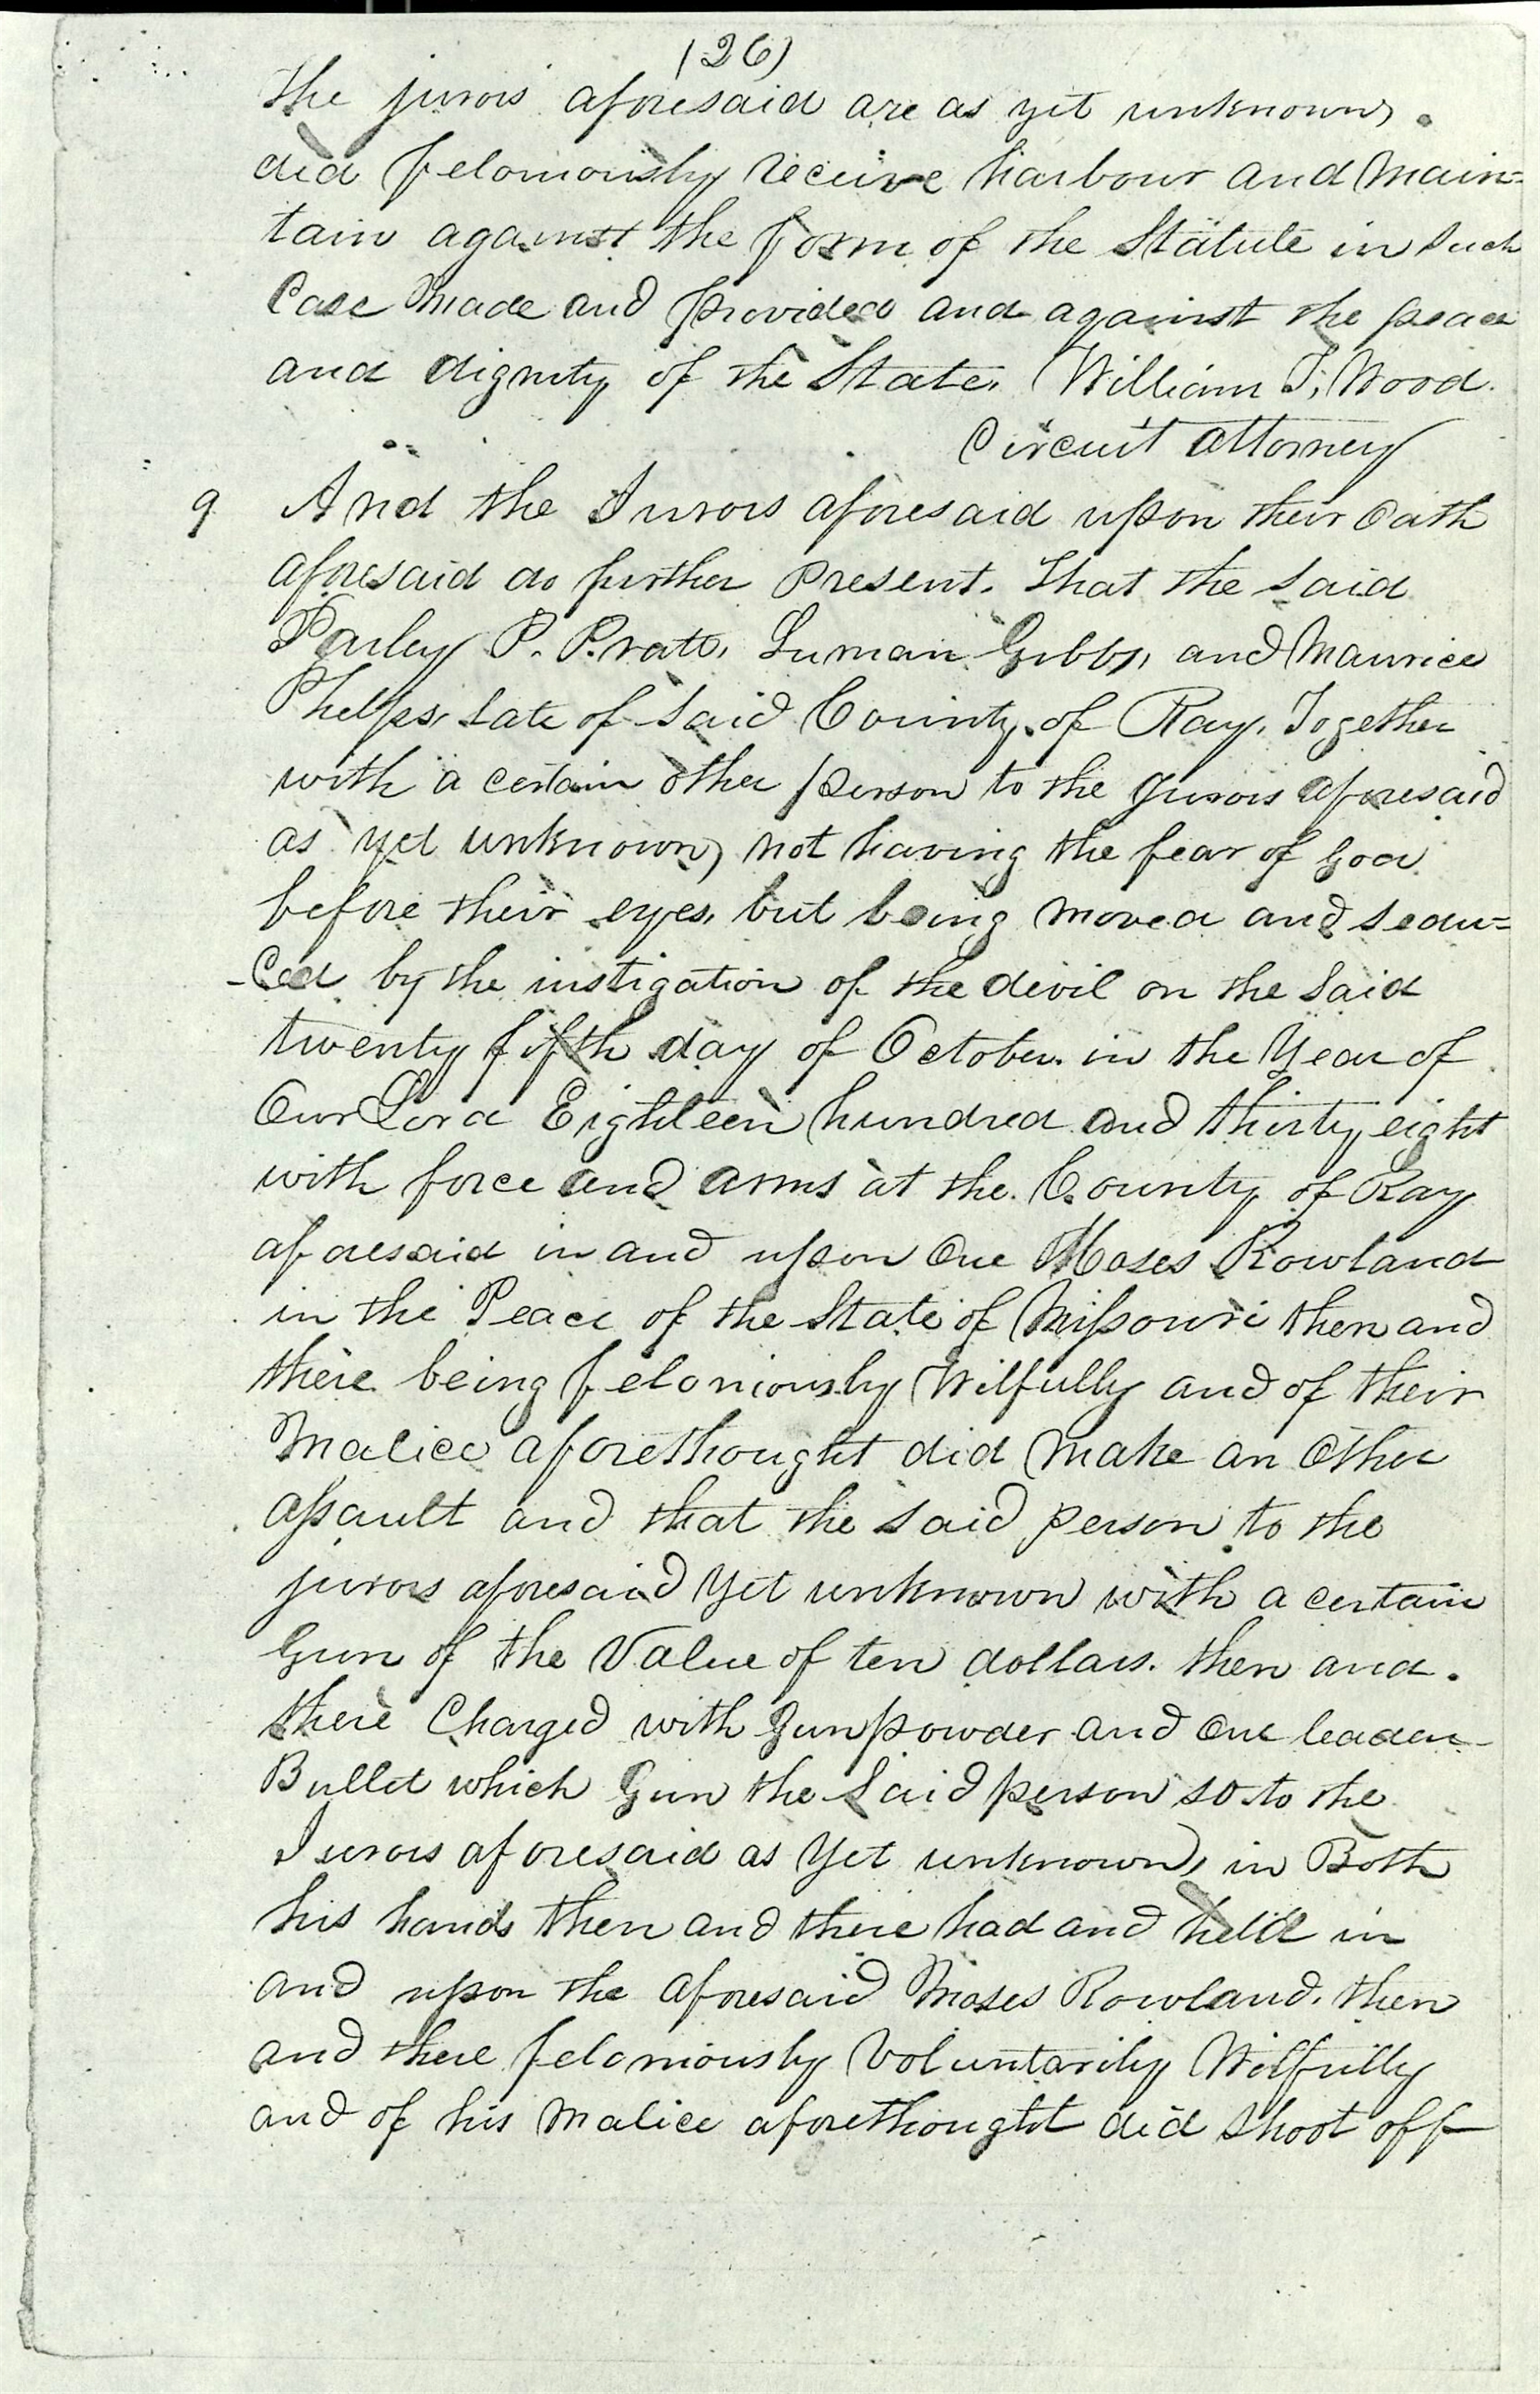 (26)
the jurors aforesaid are as yet unknown,
did feloniously receive harbour and Main=
tain against the form of the Statute in Such
Case Made and provided and against the peace
and dignity of the State. William T. Wood.
Circuit attorney
9 And the Jurors aforesaid upon their Oath
aforesaid do further present. That the Said
Parley P. Pratt, Luman Gibbs, and Maurice
Phelps, late of Said County of Ray. Together
with a certain other person to the Jurors aforesaid
as yet unknown, not having the fear of God
before their eyes, but being moved and sedu=
-ced by the instigation of the devil on the Said
twenty fifth day of October in the Year of
Our Lord Eighteen hundred and thirty eight
with force and arms at the County of Ray
aforesaid in and upon One Moses Rowland
in the Peace of the State of Missouri then and
there being feloniously Wilfully and of their
Malice aforethought did Make an Other
assault and that the Said person to the
jurors aforesaid Yet unknown with a certain
Gun of the Value of ten dollars. then and
there Charged with Gunpowder and One leaden
Bullet which Gun the Said person so to the
Jurors aforesaid as Yet unknown, in Both
his hands then and there had and held in
and upon the aforesaid Moses Rowland. then
and there feloniously Voluntarily Wilfully
and of his Malice aforethought did Shoot off